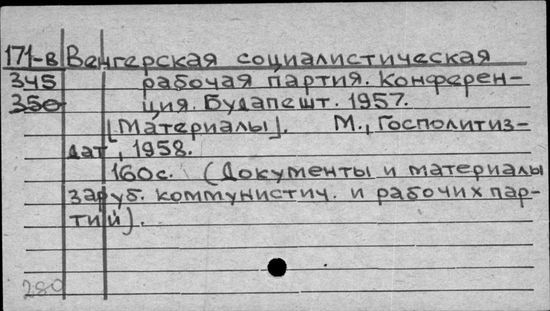 171-в Венгерская социалистическая
345 рабочая партия. Конферен-
350 ция. Будапешт. 1957.
[Материалы]. М., Госполитиз-
дат, 1958.
160с. (Документы и материалы
заруб. коммунистич. и рабочих пар-
тий).
280